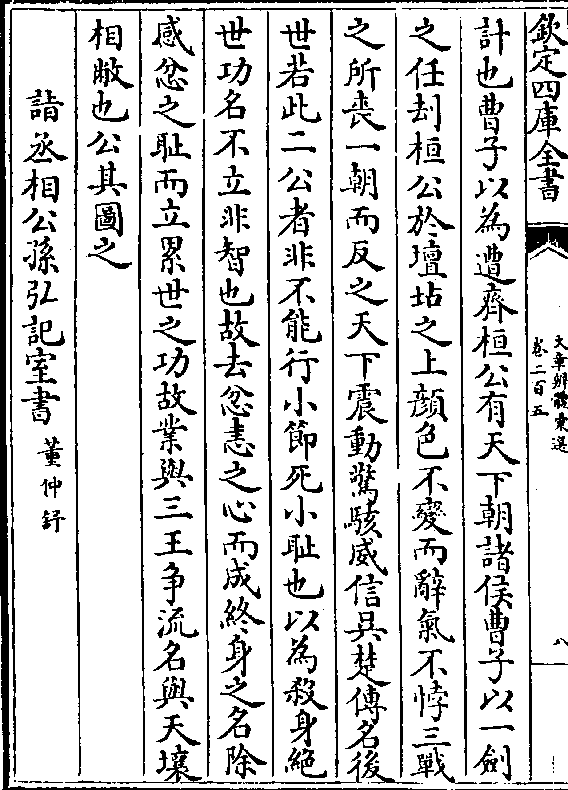 欽定四庫全書
文章辨體彙選
卷二百五
八
計也曹子以為遭齊桓公有天下朝諸侯曹子以一劍
之任刦桓公於壇坫之上顔色不變而辭氣不悖三戰
之所喪一朝而反之天下震動驚駭威信吳楚傳名後
世若此二公者非不能行小節死小耻也以為殺身絶
世功名不立非智也故去忿恚之心而成終身之名除
感忿之耻而立累世之功故業與三王爭流名與天壤
相敝也公其圖之
詣丞相公孫弘記室書 董仲舒